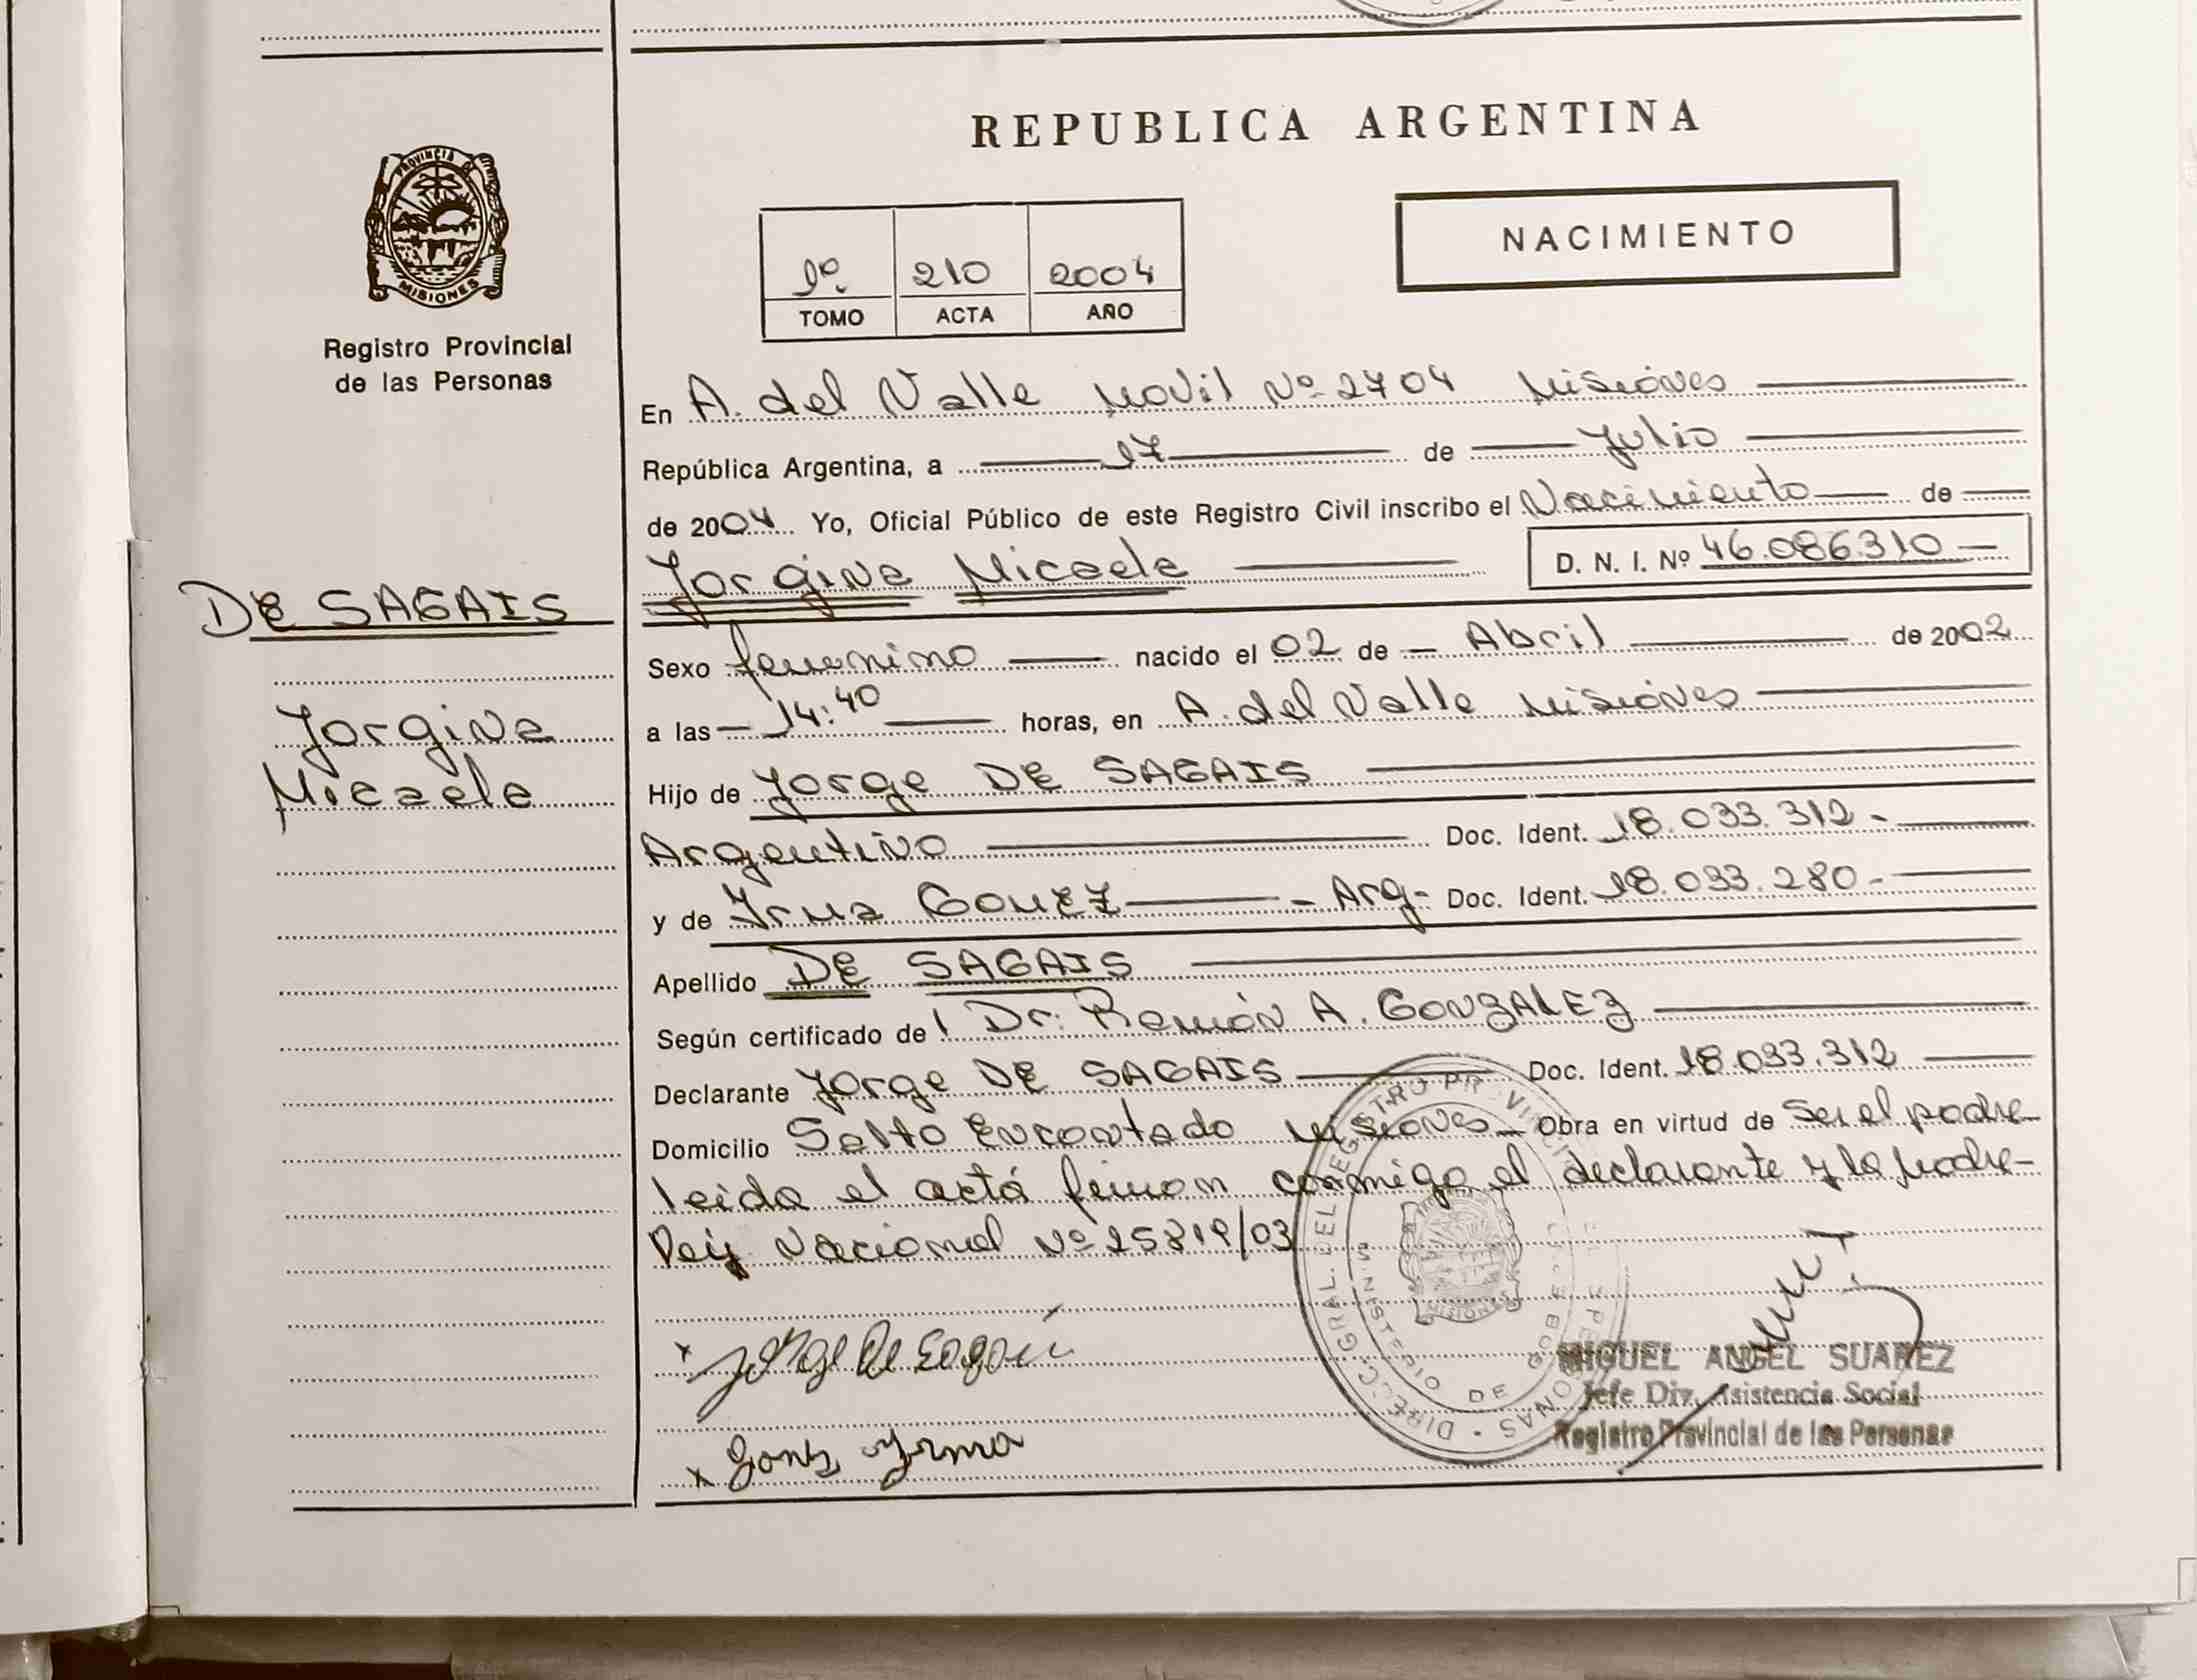 REPUBLICA ARGENTINA
PROVINCIA DE
MISIONES
Registro Provincial
de las Personas
NACIMIENTO
1º 210 2004
TOMO ACTA AÑO
En A. del Valle Movil Nº 2704 Misiones
República Argentina, a 17 de Julio
de 2004 Yo, Oficial Público de este Registro Civil inscribo el Nacimiento de
Yorgina Micaela D. N. I. Nº 46.086.310
DE SAGAIS
Yorgina
Micaela
Sexo femenino nacido el 02 de Abril de 2002
a las 14:40 horas, en A. del Valle Misiones
Hijo de Jorge DE SAGAIS
Argentino Doc. Ident. 18.033.312
y de Yrma GOMEZ Arg- Doc. Ident. 18.033.280
Apellido DE SAGAIS
Según certificado de Dr: Ramón A. GONZALEZ
Declarante Jorge DE SAGAIS Doc. Ident. 18.033.312
Domicilio Salto Encantado Misiones Obra en virtud de Ser el padre
leida el acta firman conmigo el declarante y la madre
Ley Nacional Nº 25819/03
x Jorge De Sagais
x Yrma
MIGUEL ANGEL SUAREZ
Jefe Div. Asistencia Social
Registro Provincial de las Personas